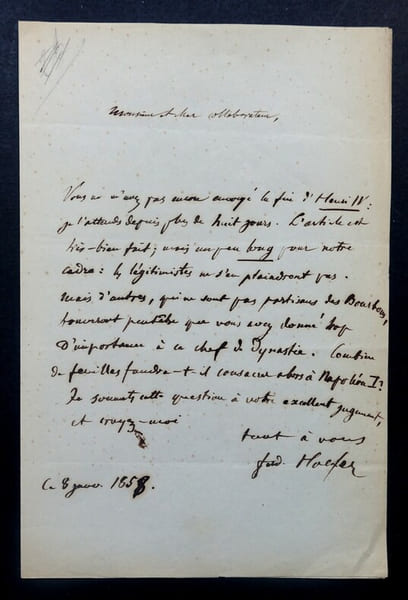 Monsieur et cher collaborateur,
Vous ne m'avez pas encore envoyé la fin d'Henri IV:
je l'attends depuis plus de huit jours. L'article est
très-bien fait; mais un peu long pour notre
cadre: les légitimistes ne s'en plaindront pas.
Mais d'autres, qui ne sont pas partisans des Bourbons,
trouveront peutêtre que vous avez donné trop
d'importance à ce chef de dynastie. Combien
de feuilles faudra-t-il consacrer alors à Napoléon I?
Je soumets cette question à votre excellent jugement,
et croyez-moi
tout à vous
ferd. Hoefer
Ce 8 janvr 1858.